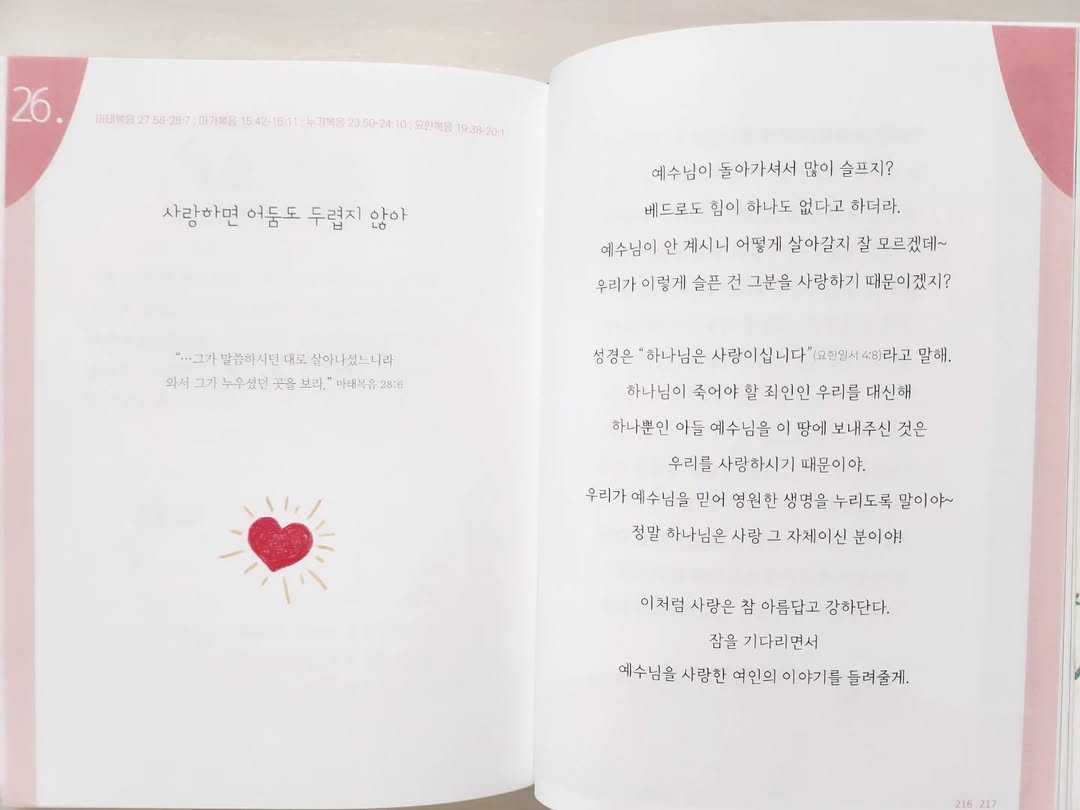 26.
마태복음 27:58-28:7 ; 마가복음 15:42-16:11 ; 누가복음 23:50-24:10 ; 요한복음 19:38-20:1
사랑하면 어둠도 두렵지 않아
“…그가 말씀하시던 대로 살아나셨느니라
와서 그가 누우셨던 곳을 보라.” 마태복음 28:6
예수님이 돌아가셔서 많이 슬프지?
베드로도 힘이 하나도 없다고 하더라.
예수님이 안 계시니 어떻게 살아갈지 잘 모르겠데~
우리가 이렇게 슬픈 건 그분을 사랑하기 때문이겠지?
성경은 “하나님은 사랑이십니다”(요한일서 4:8)라고 말해.
하나님이 죽어야 할 죄인인 우리를 대신해
하나뿐인 아들 예수님을 이 땅에 보내주신 것은
우리를 사랑하시기 때문이야.
우리가 예수님을 믿어 영원한 생명을 누리도록 말이야~
정말 하나님은 사랑 그 자체이신 분이야!
이처럼 사랑은 참 아름답고 강하단다.
잠을 기다리면서
예수님을 사랑한 여인의 이야기를 들려줄게.
216 .217